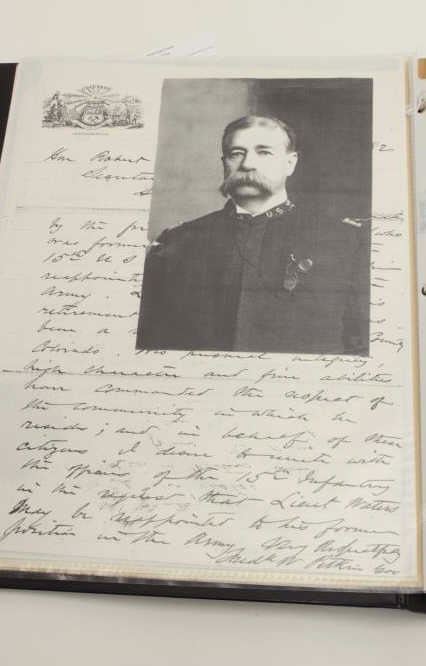 Hon Robert
Secretar
S
2
By the pr
who
was former
15th U S
reappoint
Army.
retirement
been a
Colorado. His personal integrity,
high character and fine abilities
have commanded the respect of
the community in which he
resides; and in behalf of these
citizens I desire to unite with
the officers of the 15th Infantry
in the request that Lieut Waters
may be reappointed to his former
position in the Army Very Respectfully
Fredk W Pitkin Gov
U.S.